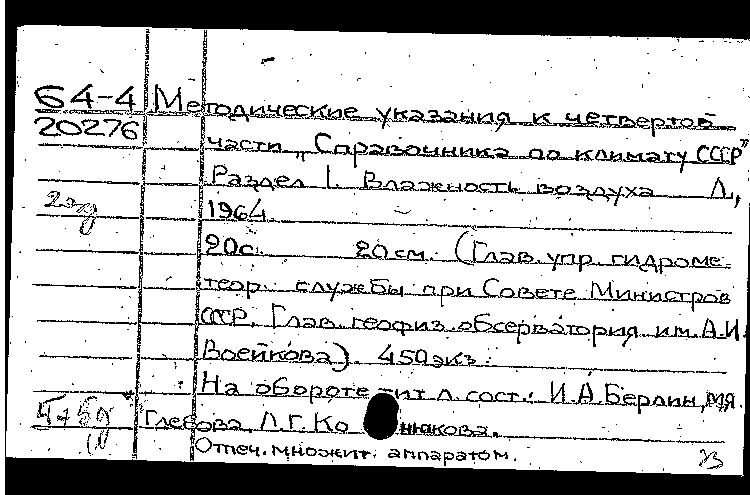 64-4 Методические указания к четвертой
20276
части „Справочника по климату СССР"
Раздел I. Влажность воздуха Л.,
2экз
1964.
20с. 20см. (Глав. упр. гидроме-
теор. службы при Совете Министров
СССР. Глав. геофиз. обсерватория им. А.И.
Воейкова). 450экз.
На обороте тит. л. сост.: И.А. Берлин, М.Я.
Глебова, Л.Г. Ко нюкова.
Отпеч. множит. аппаратом.